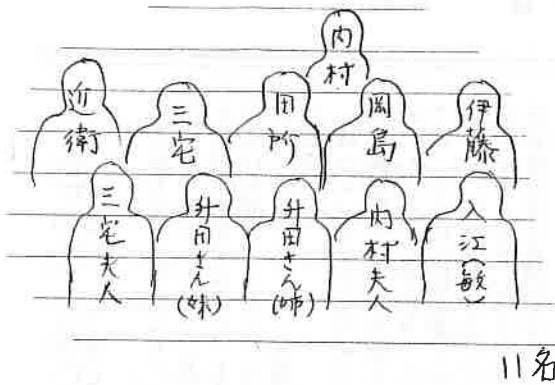 内村
近衛
三宅
田所
岡島
伊藤
三宅夫人
舛田さん(妹)
舛田さん(姉)
内村夫人
入江(敏)
11名